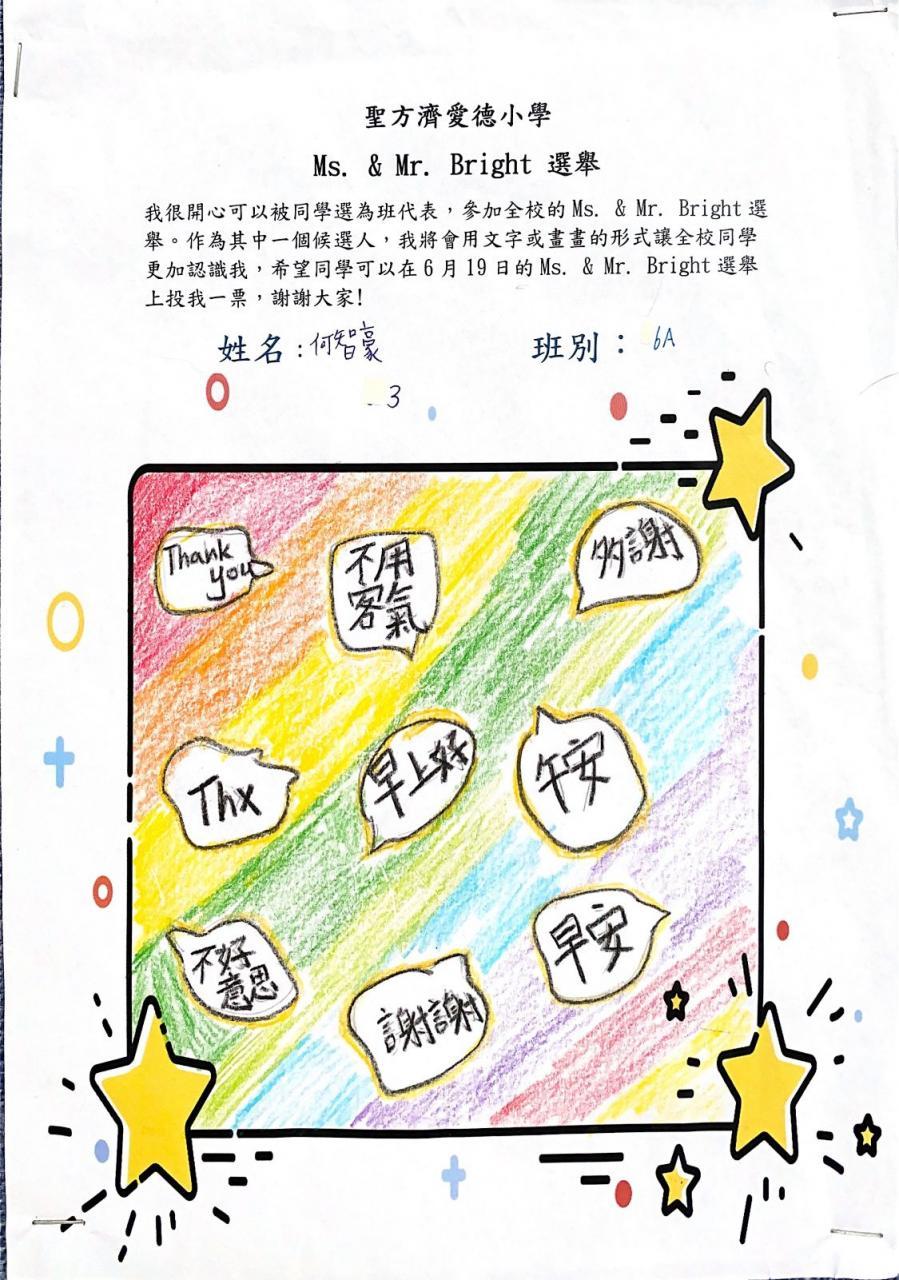 聖方濟愛德小學
Ms. & Mr. Bright 選舉
我很開心可以被同學選為班代表，參加全校的 Ms. & Mr. Bright 選
舉。作為其中一個候選人，我將會用文字或畫畫的形式讓全校同學
更加認識我，希望同學可以在 6 月 19 日的 Ms. & Mr. Bright 選舉
上投我一票，謝謝大家!
姓名：何智豪 班別：6A
3
Thank
you
不用
客氣
多謝
Thx
早上好
午安
不好
意思
謝謝
早安